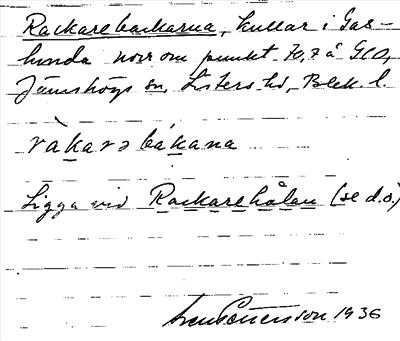 Rackarebackarna, kullar i Gas-
hunda norr om punkt 70,7 å GEO,
Jämshögs sn, Listers hd, Blek. l.
ràkarə bákana
Ligga vid Rackarehålan (se d.o.)
1936